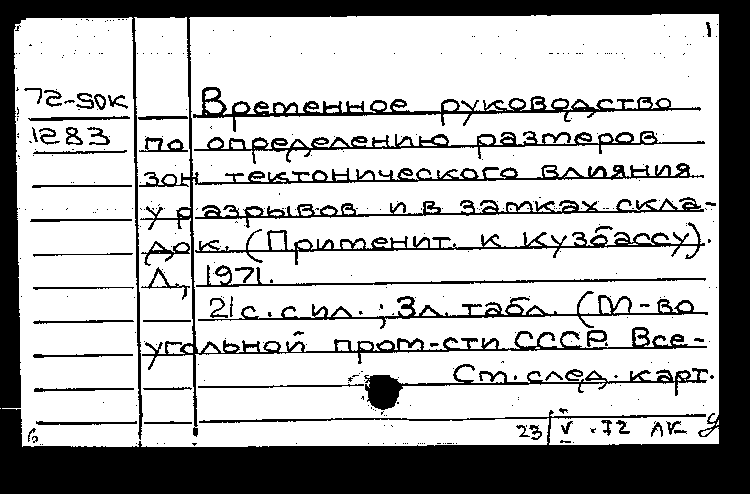 1
72-50к Временное руководство
1283 по определению размеров
зон тектонического влияния
у разрывов и в замках скла-
док. (Применит. к Кузбассу).
Л., 1971.
21 с. с ил.; 3 л. табл. (М-во
угольной пром-сти СССР. Все-
См. след. карт.
6
23/V-72 ЛК